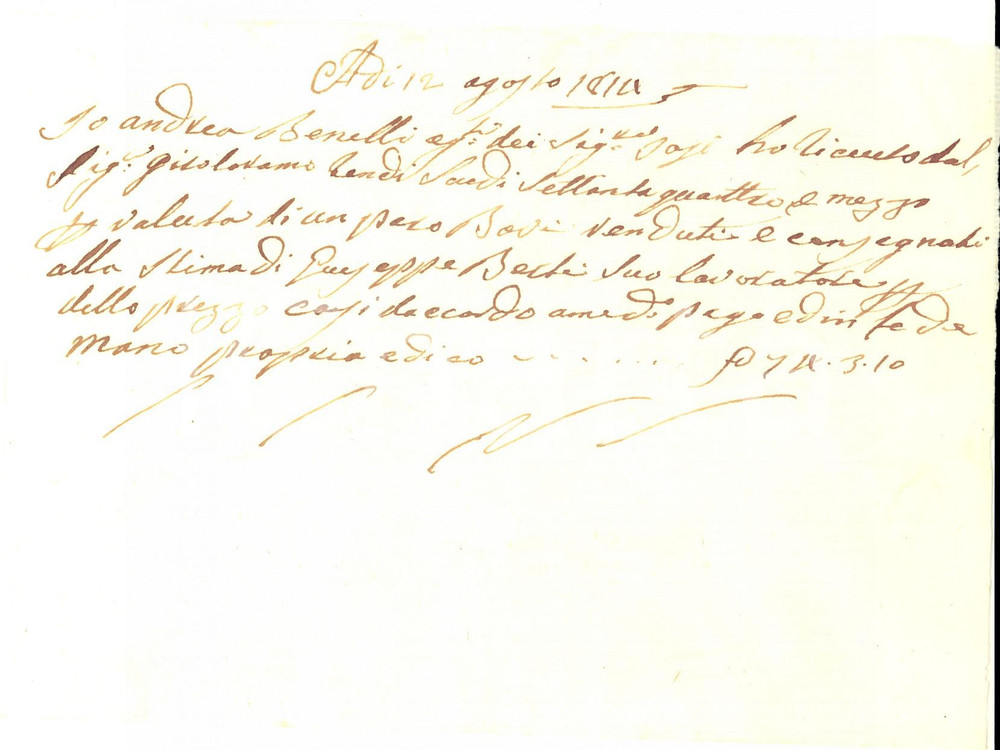 Adi 12 agosto 1814
Io andrea Benelli ag.te dei Sig.ri ho riceuto dal
Sig.e giroloramo Scudi Settantaquattro e mezzo
p valuta di un paro Bovi venduti e consegnati
alla stima di Giuseppe Berti suo lavoratore p
dello prezzo cosi daccordo ame di pago ed in fede
mano propria e dico - - . . . . . 74.3.10